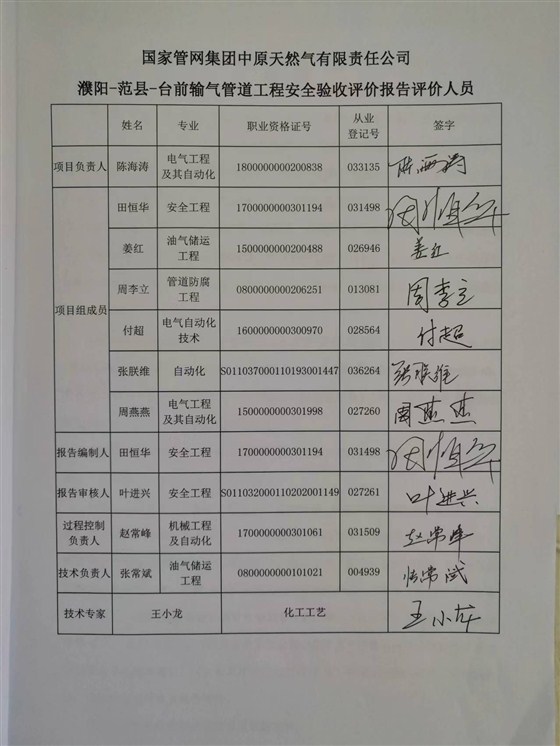 国家管网集团中原天然气有限责任公司
濮阳-范县-台前输气管道工程安全验收评价报告评价人员
姓名 专业 职业资格证号 从业登记号 签字
项目负责人 陈海涛 电气工程及其自动化 1800000000200838 033135
项目组成员 田恒华 安全工程 1700000000301194 031498 田恒华
姜红 油气储运工程 1500000000200488 026946 姜红
周李立 管道防腐工程 0800000000206251 013081 周李立
付超 电气自动化技术 1600000000300970 028564 付超
张朕维 自动化 S011037000110193001447 036264 张朕维
周燕燕 电气工程及其自动化 1500000000301998 027260 周燕燕
报告编制人 田恒华 安全工程 1700000000301194 031498 田恒华
报告审核人 叶进兴 安全工程 S011032000110202001149 027261 叶进兴
过程控制负责人 赵常峰 机械工程及自动化 1700000000301061 031509 赵常峰
技术负责人 张常斌 油气储运工程 0800000000101021 004939 张常斌
技术专家 王小龙 化工工艺 王小龙